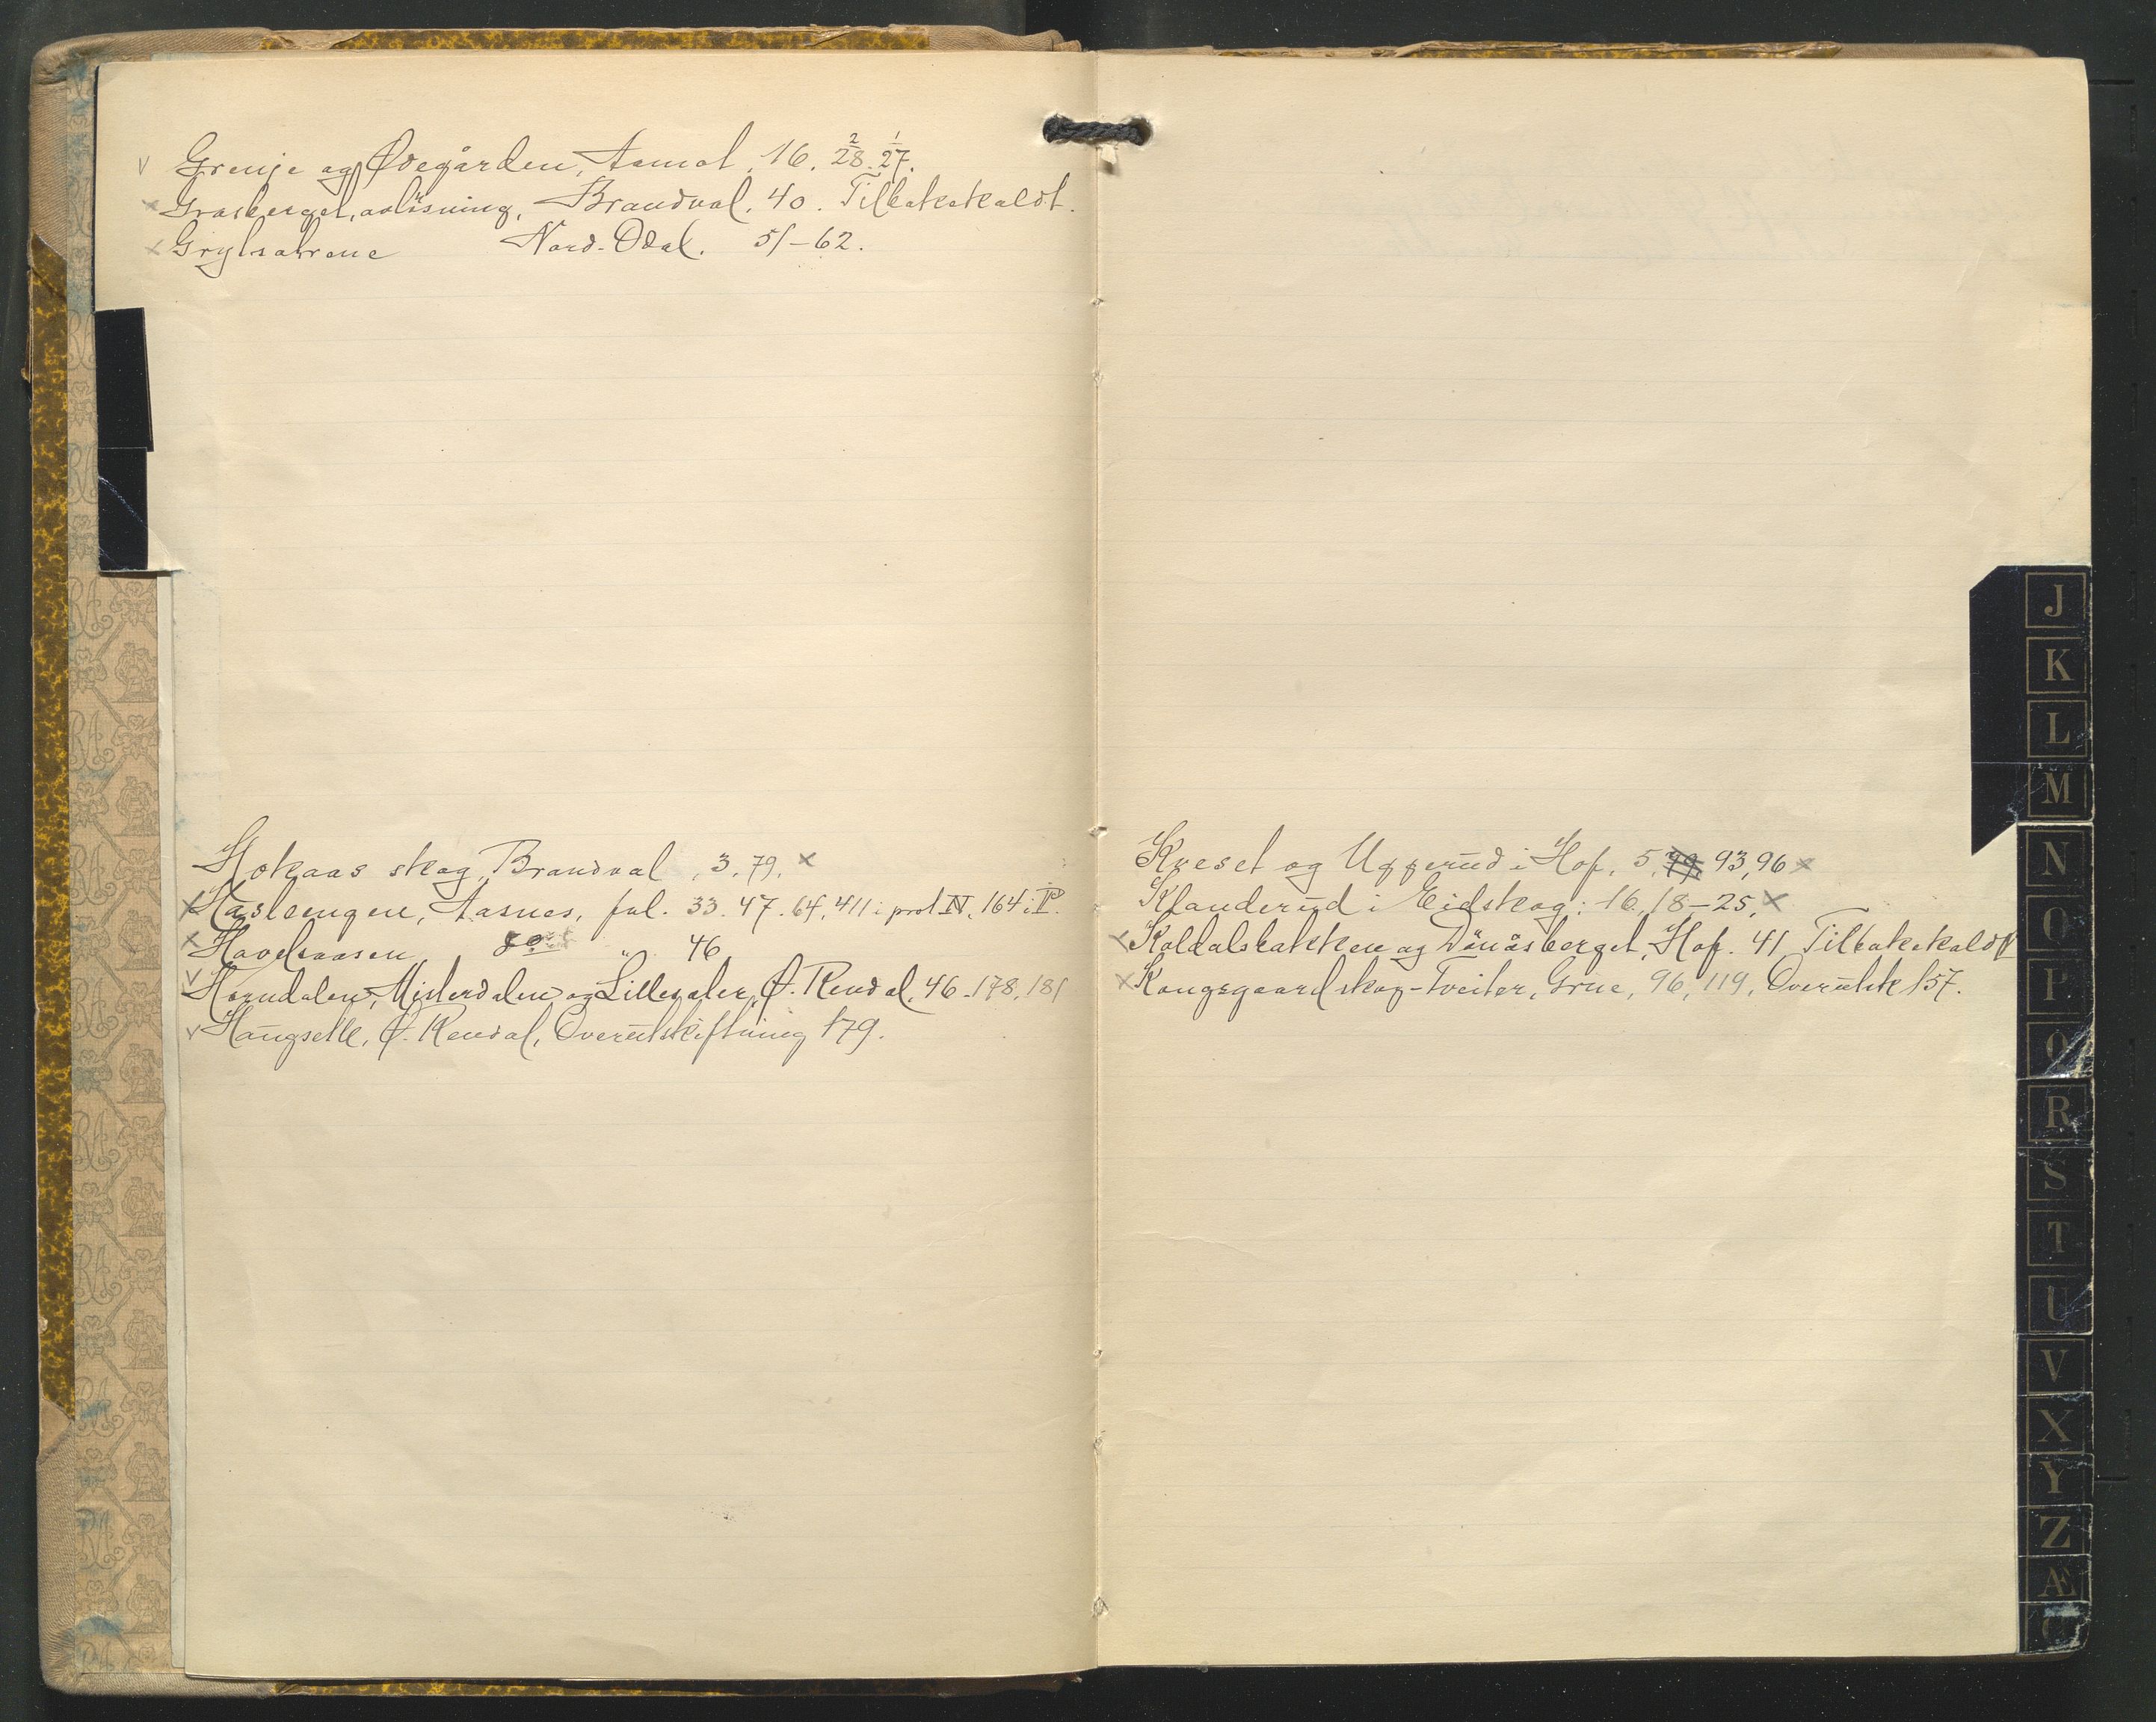 v Grenje og Ødegården, Aamot, 16. 2/28. 1/27.
x Grasberget, avløsning, Brandval. 40. Tilbakekaldt.
x Nord-Odal. 51-62.
Hokaas skog, Brandval, 3. 79. x
x Haslengen, Aasnes, fol. 33. 47. 64, 411 i prot IV, 164 i
x Havelsaasen do " 46
v Horndalen, Misterdalen og Ø. Rendal, 46-178, 181
v Haugsett, Ø. Rendal, Overutskiftning 179.
Kveset og Uggerud i Hof, 5, 93, 96 x
Klanderud i Eidskog: 16. 18-25, x
x og Dønåsberget, Hof. 41 Tilbakekaldt
x Kongsgaard skog-Tveiter, Grue, 96, 119, Overutsk 157.
J
K
L
M
N
O
P
Q
R
S
T
U
V
X
Y
Z
Æ